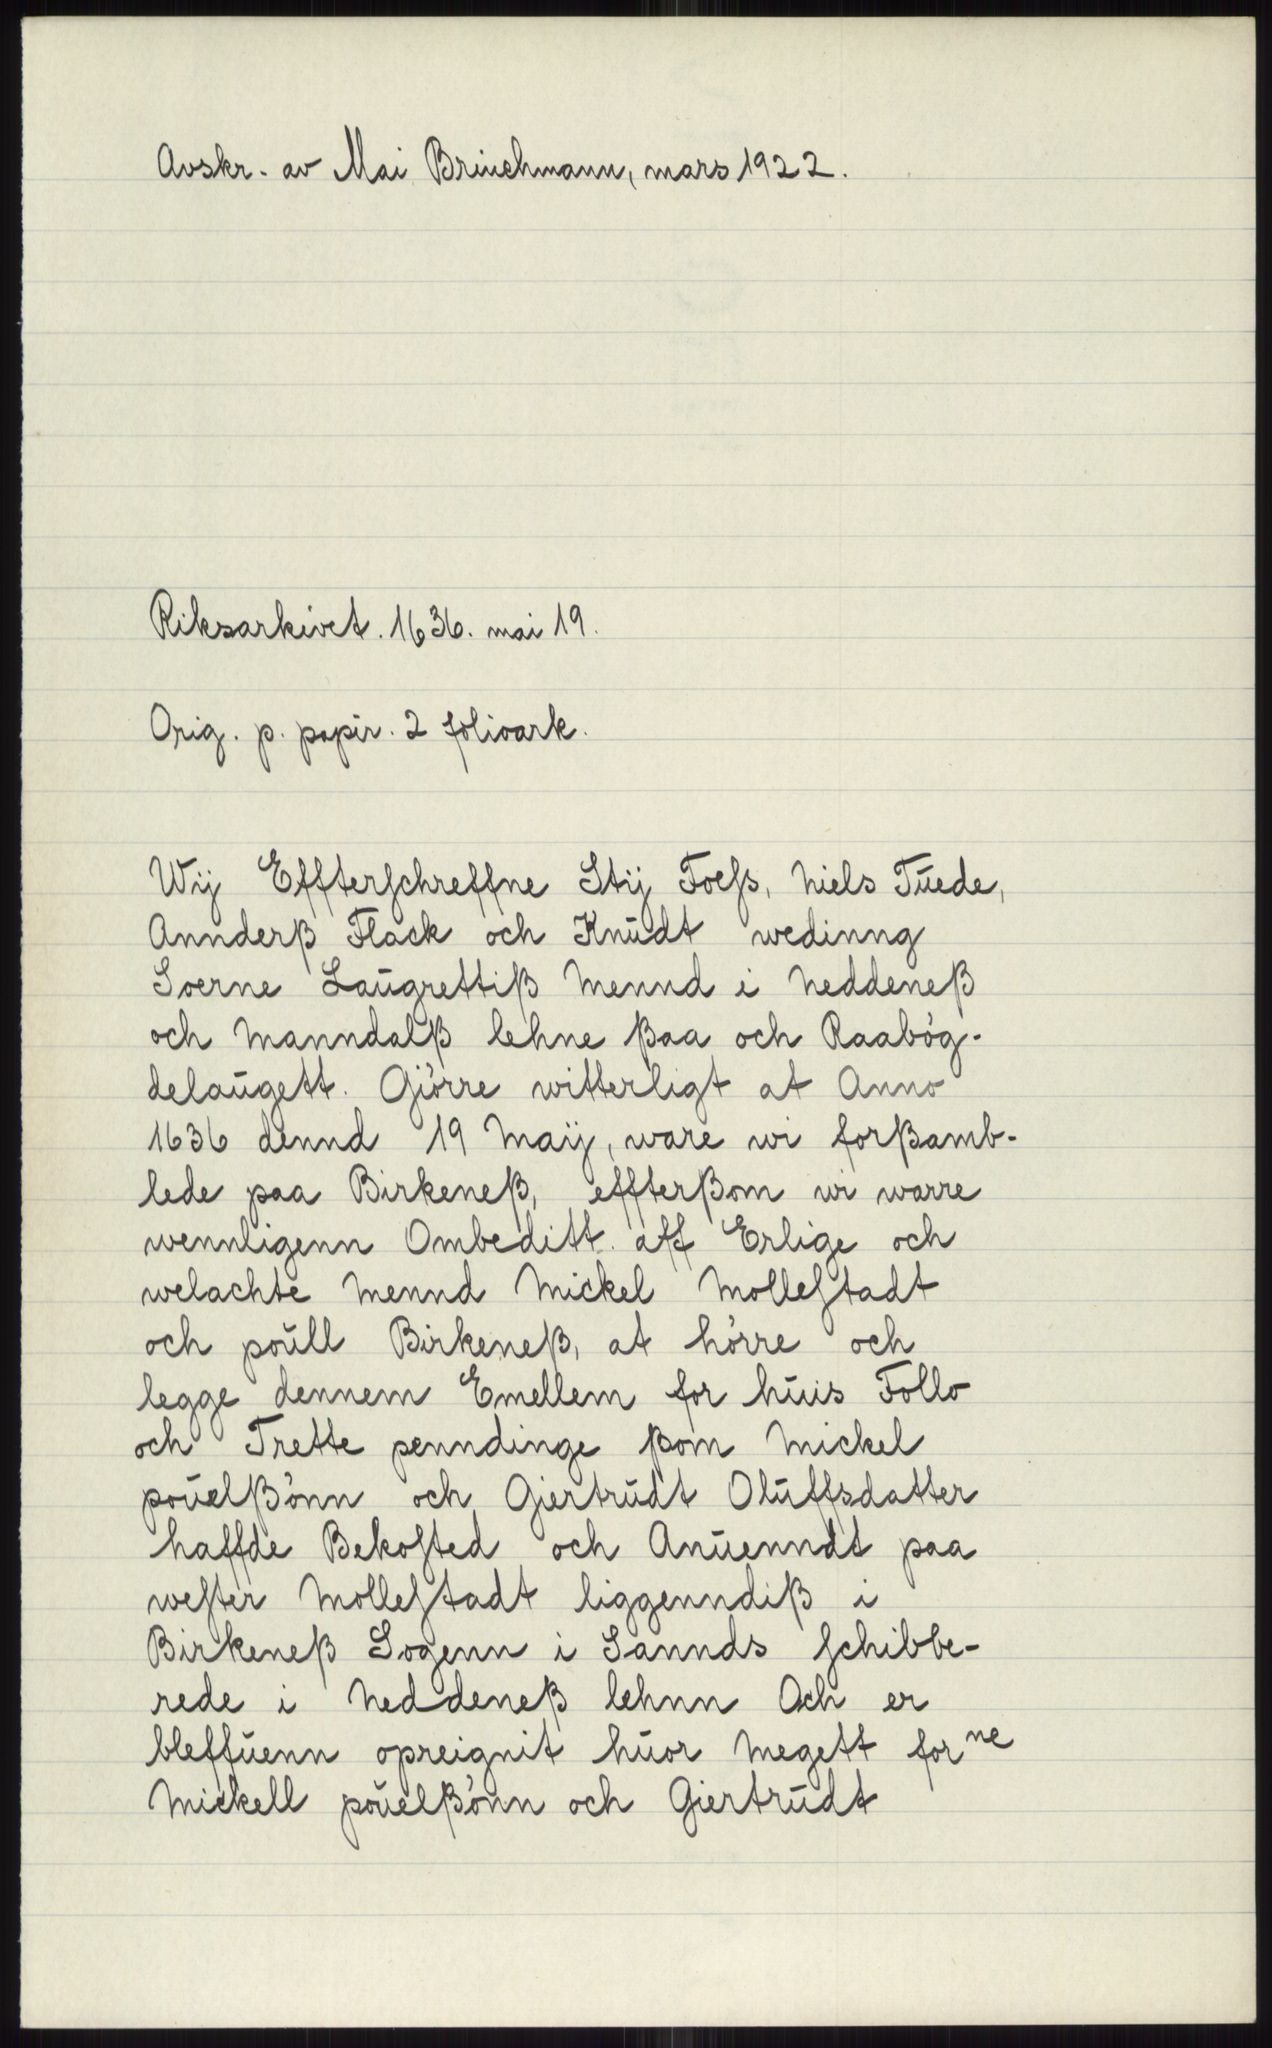 Avskr. av Mai Brinchmann, mars 1922.
Riksarkivet. 1636. mai 19.
Orig. p. papir. 2 folioark.
Wij Effterſchreffne Stij Foeſs, Niels Tŭede,
Annderß Flack och Knŭdt wedinng
Soerne Laŭgrettiß Mennd i Neddeneß
och Manndalß lehne ßaa och Raabög-
delaŭgett. Giörre witterligt at Anno
1636 dennd 19 Maij, ware wi forßamb-
lede paa Birkeneß, effterßom wi warre
wennligenn Ombeditt aff Erlige och
welachte Mennd Mickel Molleſtadt
och poŭll Birkeneß, at hörre och
legge dennem Emellem for hŭis Follo
och Trette penndinge ßom Mickel
poŭelßönn och Giertrŭdt Olŭffsdatter
haffde Bekoſted och Anŭenndt paa
weſter Molleſtadt liggenndiß i
Birkeneß Sogenn i Sannds ſchibbe-
rede i Neddeneß lehnn Och er
bleffŭenn opreignit hŭor Megett forne
Mickell poŭelßönn och Giertrŭdt